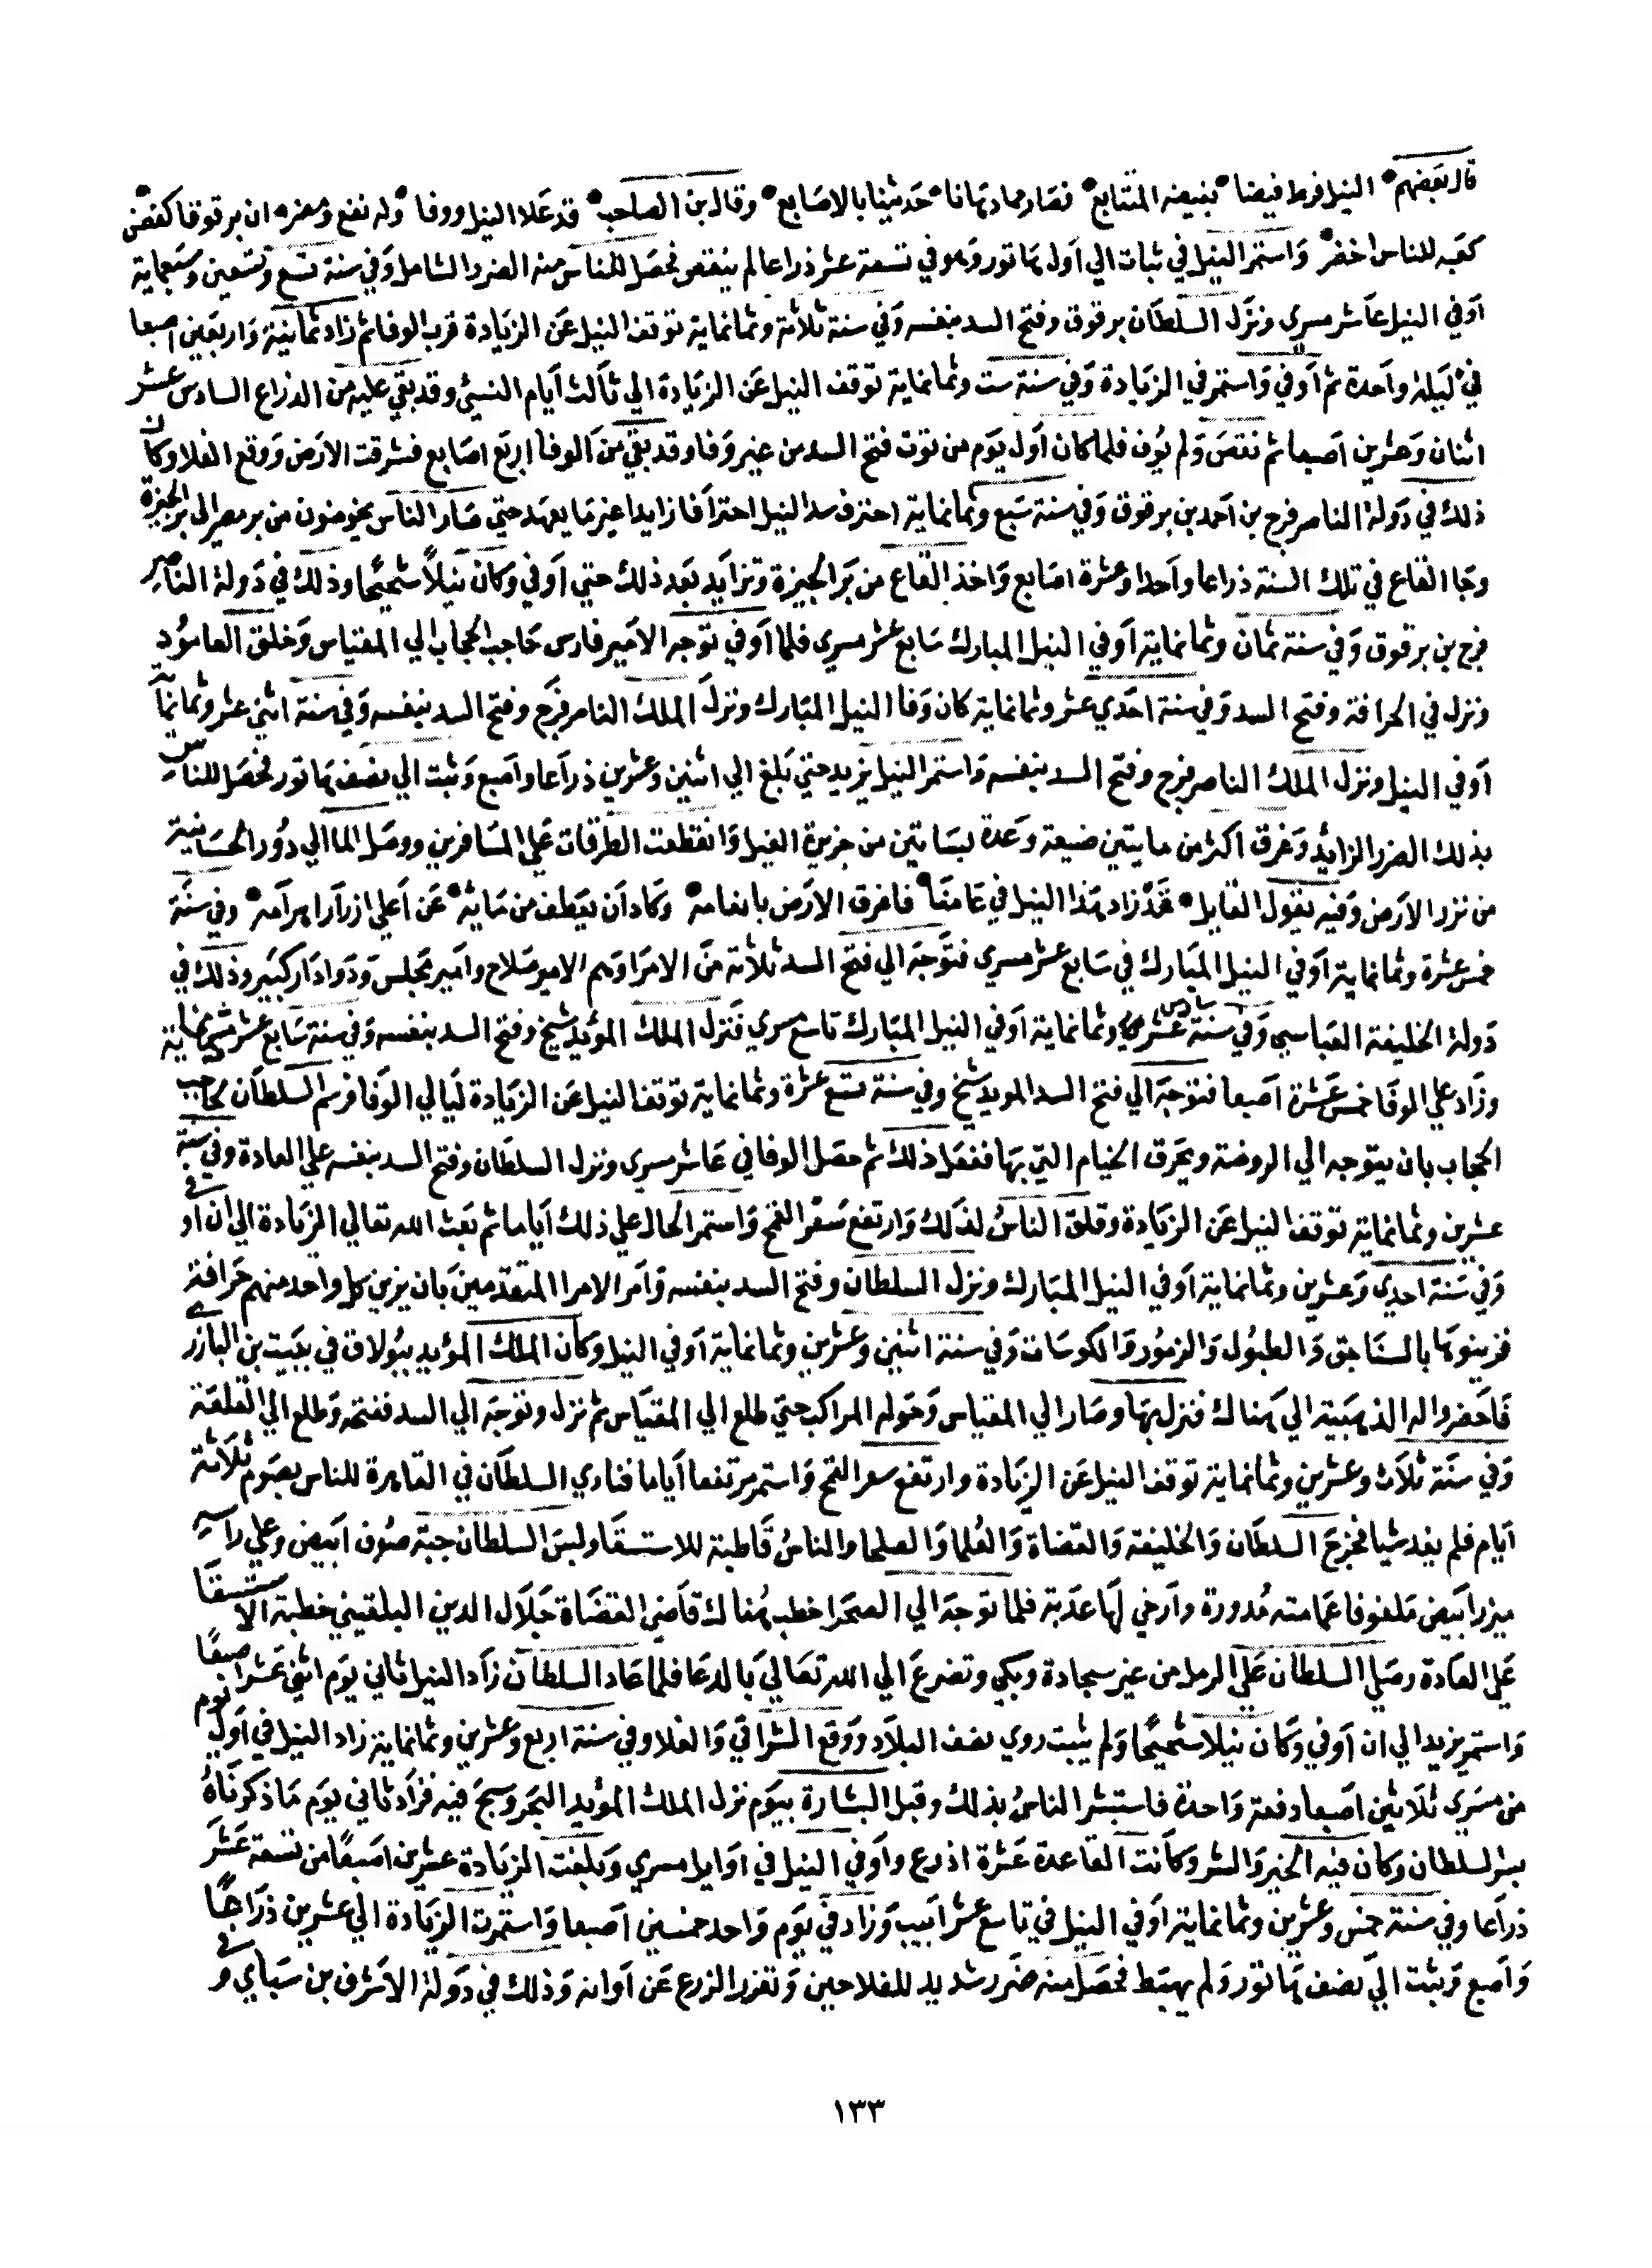 قال بعضهم النيل فرط فيضا بفيضه المتتابع فصار مما دهانا حديثنا بالاصابع وقال بن الصاحب قد علا النيل ووفا وله نفع ومضره ان برقوقا كفض
كعبه للناس اخضر واستمر النيل في ثبات الي اول هاتور وهو في تسعة عشر ذراعا لم ينقص فحصل للناس منه الضرر الشامل وفي سنة تسع وتسعين وسبعماية
اوفي النيل عاشر مسري ونزل السلطان برقوق وفتح السد بنفسه وفي سنة ثلاثة وثمانماية توقف النيل عن الزيادة قرب الوفا ثم زاد ثمانية واربعين اصبعا
في ليلة واحدة ثم اوفي واستمر في الزيادة وفي سنة ست وثمانماية توقف النيل عن الزيادة الي ثالث ايام النسئ وقد بقي عليه من الذراع السادس عشر
اثنان وعشرين اصبعا ثم نقص ولم يوف فلما كان اول يوم من توت فتح السد من غير وفا وقد بقي من الوفا اربع اصابع فشرقت الارض ووقع الغلا وكان
ذلك في دولة الناصر فرج بن احمد بن برقوق وفي سنة سبع وثمانماية احترف سد النيل احتراقا زايدا غير ما يعهد حتي صار الناس يخوضون من بر مصر الى بر الجيزة
وجا القاع في تلك السنة ذراعا واحدا وعشرة اصابع واخذ القاع من بر الجيزة وتزايد بعد ذلك حتي اوفي وكان نيلا شحيحا وذلك في دولة الناصر
فرج بن برقوق وفي سنة ثمان وثمانماية اوفي النيل المبارك سابع عشر مسري فلما اوفي توجه الامير فارس حاجب الحجاب الي المقياس وخلق العامود
ونزل في الحراقة وفتح السد وفي سنة احدي عشر وثمانماية كان وفا النيل المبارك ونزل الملك الناصر فرج وفتح السد بنفسه وفي سنة اثني عشر وثمانماية
اوفي النيل ونزل الملك الناصر فرج وفتح السد بنفسه واستمر النيل يزيد حتي بلغ الي اثنين وعشرين ذراعا واصبع وثبت الي نصف هاتور فحصل للناس
بذلك الضرر الزايد وغرق اكثر من مايتين ضيعة وعدة بساتين من جزيرة الفيل وانقطعت الطرقات علي المسافرين ووصل الما الي دور الحسانية
من نزر الارض وفيه يقول القايل قد زاد هذا النيل في عامنا فاغرق الارض بانعامه وكاد ان يعطف من مايه عن اعلي ازرار اهرامه وفي سنة
خمس عشرة وثمانماية اوفي النيل المبارك في سابع عشر مسري فتوجه الي فتح السد ثلاثة من الامرا وهم الامير سلاح وامير مجلس ودوادار كبير وذلك في
دولة الخليفة العباسي وفي سنة سادس عشر وثمانماية اوفي النيل المبارك تاسع مسري فنزل الملك المؤيد شيخ وفتح السد بنفسه وفي سنة سابع عشر وثمانماية
وزاد علي الوفا خمس عشرة اصبعا فتوجه الي فتح السد المويد شيخ وفي سنة تسع عشرة وثمانماية توقف النيل عن الزيادة ليالي الوفا فرسم السلطان لحاجب
الحجاب بان يتوجه الي الروضة ويحرق الخيام التي بها ففعل ذلك ثم حصل الوفا في عاشر مسري ونزل السلطان وفتح السد بنفسه علي العادة وفي سنة
عشرين وثمانماية توقف النيل عن الزيادة وقلق الناس لذلك وارتفع سعر القمح واستمر الحال علي ذلك اياما ثم بعث الله تعالي الزيادة الي ان اوفي
وفي سنة احدي وعشرين وثمانماية اوفي النيل المبارك ونزل السلطان وفتح السد بنفسه وامر الامرا المتقدمين بان يزين كل واحد منهم حراقة
فزينوها بالسناجق والطبول والزمور والكوسات وفي سنة اثنين وعشرين وثمانماية اوفي النيل وكان الملك المؤيد ببولاق في بيت بن البازري
فاحضروا له الذهبية الي هناك فنزل بها وصار الي المقياس وحوله المراكب حتي طلع الي المقياس ثم نزل وتوجه الي السد ففتحه وطلع الي القلعة
وفي سنة ثلاث وعشرين وثمانماية توقف النيل عن الزيادة وارتفع سعر القمح واستمر مرتفعا اياما فنادي السلطان في القاهرة للناس بصوم ثلاثة
ايام فلم يفد شيا فخرج السلطان والخليفة والقضاة والعلما والصلحا والناس قاطبة للاستسقا ولبس السلطان جبة صوف ابيض وعلي راسه
ميزر ابيض ملفوفا عمامته مدورة وارخي لها عذبة فلما توجه الي الصحرا خطب هناك قاضي القضاة جلال الدين البلقيني خطبة الاستسقا
علي العادة وصلي السلطان علي الرمل من غير سجادة وبكي وتضرع الي الله تعالي بالدعا فلما عاد السلطان زاد النيل ثاني يوم اثني عشر اصبعا
واستمر يزيد الي ان اوفي وكان نيلا شحيحا ولم يثبت روي نصف البلاد ووقع الشراقي والغلا وفي سنة اربع وعشرين وثمانماية زاد النيل في اول يوم
من مسري ثلاثين اصبعا دفعة واحدة فاستبشر الناس بذلك وقبل البشارة بيوم نزل الملك المؤيد البحر وسبح فيه فزاد ثاني يوم ما ذكرناه
بسر السلطان وكان فيه الخير والشر وكانت القاعدة عشرة اذرع واوفي النيل في اوايل مسري وبلغت الزيادة عشرين اصبعا من تسعة عشر
ذراعا وفي سنة خمس وعشرين وثمانماية اوفي النيل في تاسع عشر ابيب وزاد في يوم واحد خمسين اصبعا واستمرت الزيادة الي عشرين ذراعا
واصبع وثبت الي نصف هاتور ولم يهبط فحصل منه ضرر شديد للفلاحين وتغزر الزرع عن اوانه وذلك في دولة الاشرف بن سباي وفي
١٣٣